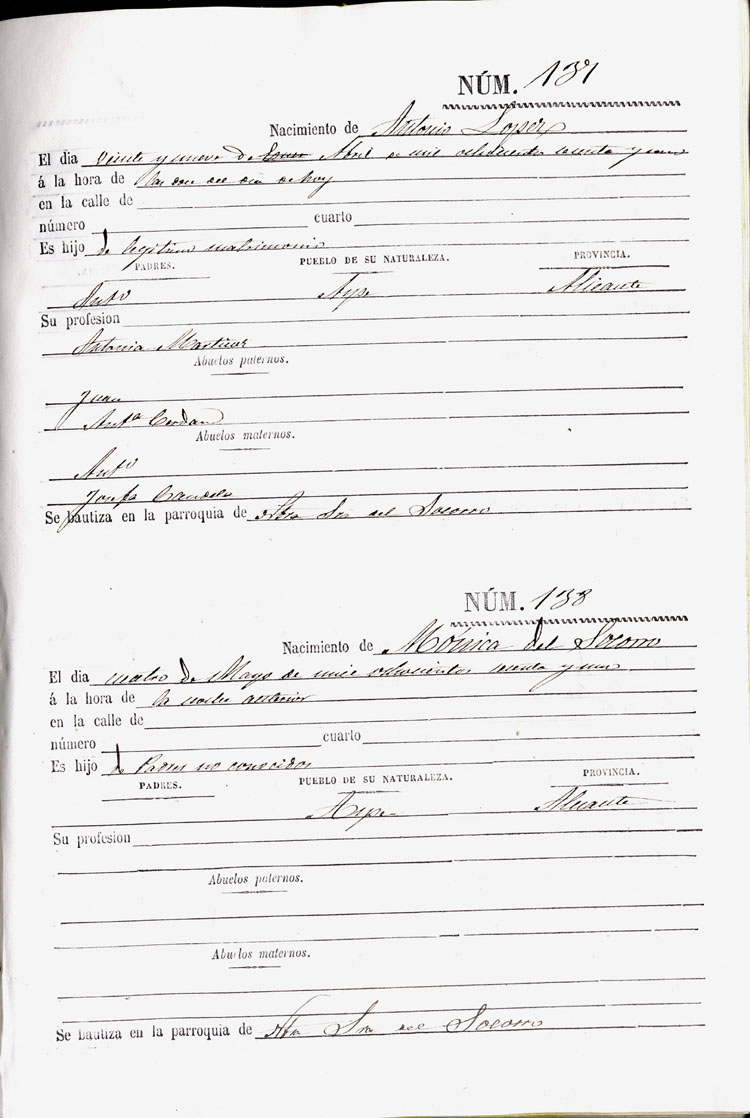 NÚM. 137
Nacimiento de Antonio Lopez
El dia veinte y nueve de Abril de mil ochocientos sesenta y uno
á la hora de las dia de hoy
en la calle de
número cuarto
Es hijo de legitimo matrimonio
PADRES. PUEBLO DE SU NATURALEZA. PROVINCIA.
Antº Aspe Alicante
Su profesion
Antonia Martinez
Abuelos paternos.
Juan
Antª Cerdan
Abuelos maternos.
Antº
Josefa Candela
Se bautiza en la parroquia de Ntra Sra del Socorro
NÚM. 138
Nacimiento de Mónica del Socorro
El dia cuatro de Mayo de mil ochocientos sesenta y uno
á la hora de la noche anterior
en la calle de
número cuarto
Es hijo de Padres no conocidos
PADRES. PUEBLO DE SU NATURALEZA. PROVINCIA.
Aspe Alicante
Su profesion
Abuelos paternos.
Abuelos maternos.
Se bautiza en la parroquia de Ntra Sra del Socorro